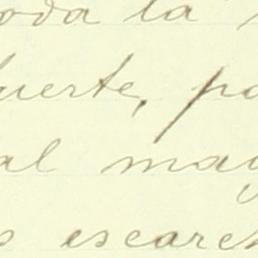 oda la
uerte, po
al may
s escarch